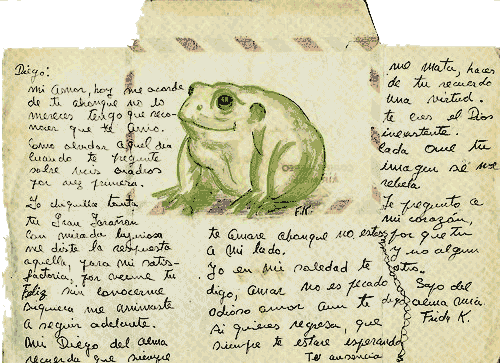 Diego:
mi amor, hoy me acorde
de ti ahonque no lo
mereces tengo que reco-
nocer que te amo.
Como olvidar aquel dia
cuando te pregunte
sobre mis cuadros
por vez primera.
Yo chiquilla tonta
tu gran
con mirada lujuriosa
me diste la respuesta
aquella, para mi satis-
factoria, por verme tu
Feliz sin conocerme
siquiera me animaste
a seguir adelante.
Mi Diego del alma
recuerda que siempre
te amare ahonque no estes
a mi lado.
Yo en mi soledad te
digo, amar no es pecado
odioso amor aun te digo
si quieres regresa, que
siempre te estare esperando
Tu ausencia
me mata, haces
de tu recuerdo
una virtud.
tu eres el Dios
inexistente.
cada que tu
imagen se me
rebela.
le pregunto a
mi corazón,
por que tu
y no algun
otro.
Sapo del
alma mia.
Frida K.
F.K.